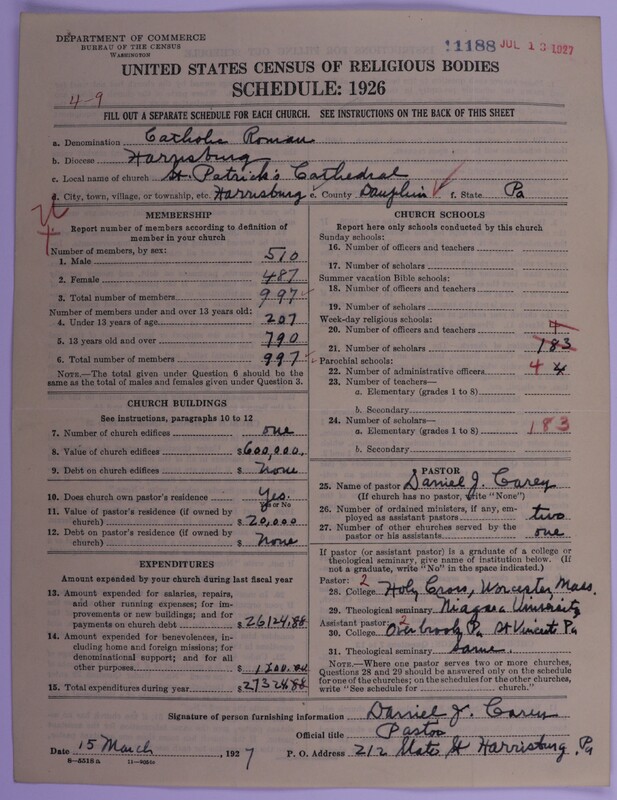 DEPARTMENT OF COMMERCE
BUREAU OF THE CENSUS
WASHINGTON
11188 JUL 13 1927
UNITED STATES CENSUS OF RELIGIOUS BODIES
SCHEDULE: 1926
4-9
FILL OUT A SEPARATE SCHEDULE FOR EACH CHURCH. SEE INSTRUCTIONS ON THE BACK OF THIS SHEET
a. Denomination Catholic Roman
b. Diocese Harrisburg
c. Local name of church St. Patrick's Cathedral
d. City, town, village, or township, etc. Harrisburg e. County Dauphin f. State Pa
MEMBERSHIP
Report number of members according to definition of
member in your church
Number of members, by sex:
1. Male 510
2. Female 487
3. Total number of members 997
Number of members under and over 13 years old:
4. Under 13 years of age 207
5. 13 years old and over 790
6. Total number of members 997
NOTE.—The total given under Question 6 should be
same as the total of males and females given under Question 3.
CHURCH BUILDINGS
See instructions, paragraphs 10 to 12
7. Number of church edifices one
8. Value of church edifices $600,000.
9. Debt on church edifices $ None
10. Does church own pastor's residence Yes.
Yes or No
11. Value of pastor's residence (if owned by
church) $20,000
12. Debt on pastor's residence (if owned by
church) $ None
EXPENDITURES
Amount expended by your church during last fiscal year
13. Amount expended for salaries, repairs,
and other running expenses; for im-
provements or new buildings; and for
payments on church debt $26124.88
14. Amount expended for benevolences, in-
cluding home and foreign missions; for
denominational support; and for all
other purposes $1200.00
15. Total expenditures during year $27324.88
CHURCH SCHOOLS
Report here only schools conducted by this church
Sunday schools:
16. Number of officers and teachers
17. Number of scholars
Summer vacation Bible schools:
18. Number of officers and teachers
19. Number of scholars
Week-day religious schools:
20. Number of officers and teachers 4
21. Number of scholars 183
Parochial schools:
22. Number of administrative officers 4 4
23. Number of teachers—
a. Elementary (grades 1 to 8)
b. Secondary
24. Number of scholars—
a. Elementary (grades 1 to 8) 183
b. Secondary
PASTOR
25. Name of pastor Daniel J. Carey
(If church has no pastor, write "None")
26. Number of ordained ministers, if any, em-
ployed as assistant pastors two
27. Number of other churches served by the
pastor or his assistants one
If pastor (or assistant pastor) is a graduate of a college or
theological seminary, give name of institution below. (If
not a graduate, write "No" in the space indicated.)
Pastor: 2
28. College Holy Cross, Worcester Mass.
29. Theological seminary Niagara University
Assistant pastor: 2
30. College Overbrook Pa St Vincents Pa
31. Theological seminary Same.
NOTE.—Where one pastor serves two or more churches,
Questions 28 and 29 should be answered only on the schedule
for one of the churches; on the schedules for the other churches,
write "See schedule for church."
Signature of person furnishing information Daniel J. Carey
Official title Pastor
Date 15 March, 1927 P. O. Address 212 State St Harrisburg, Pa
8—5518 a